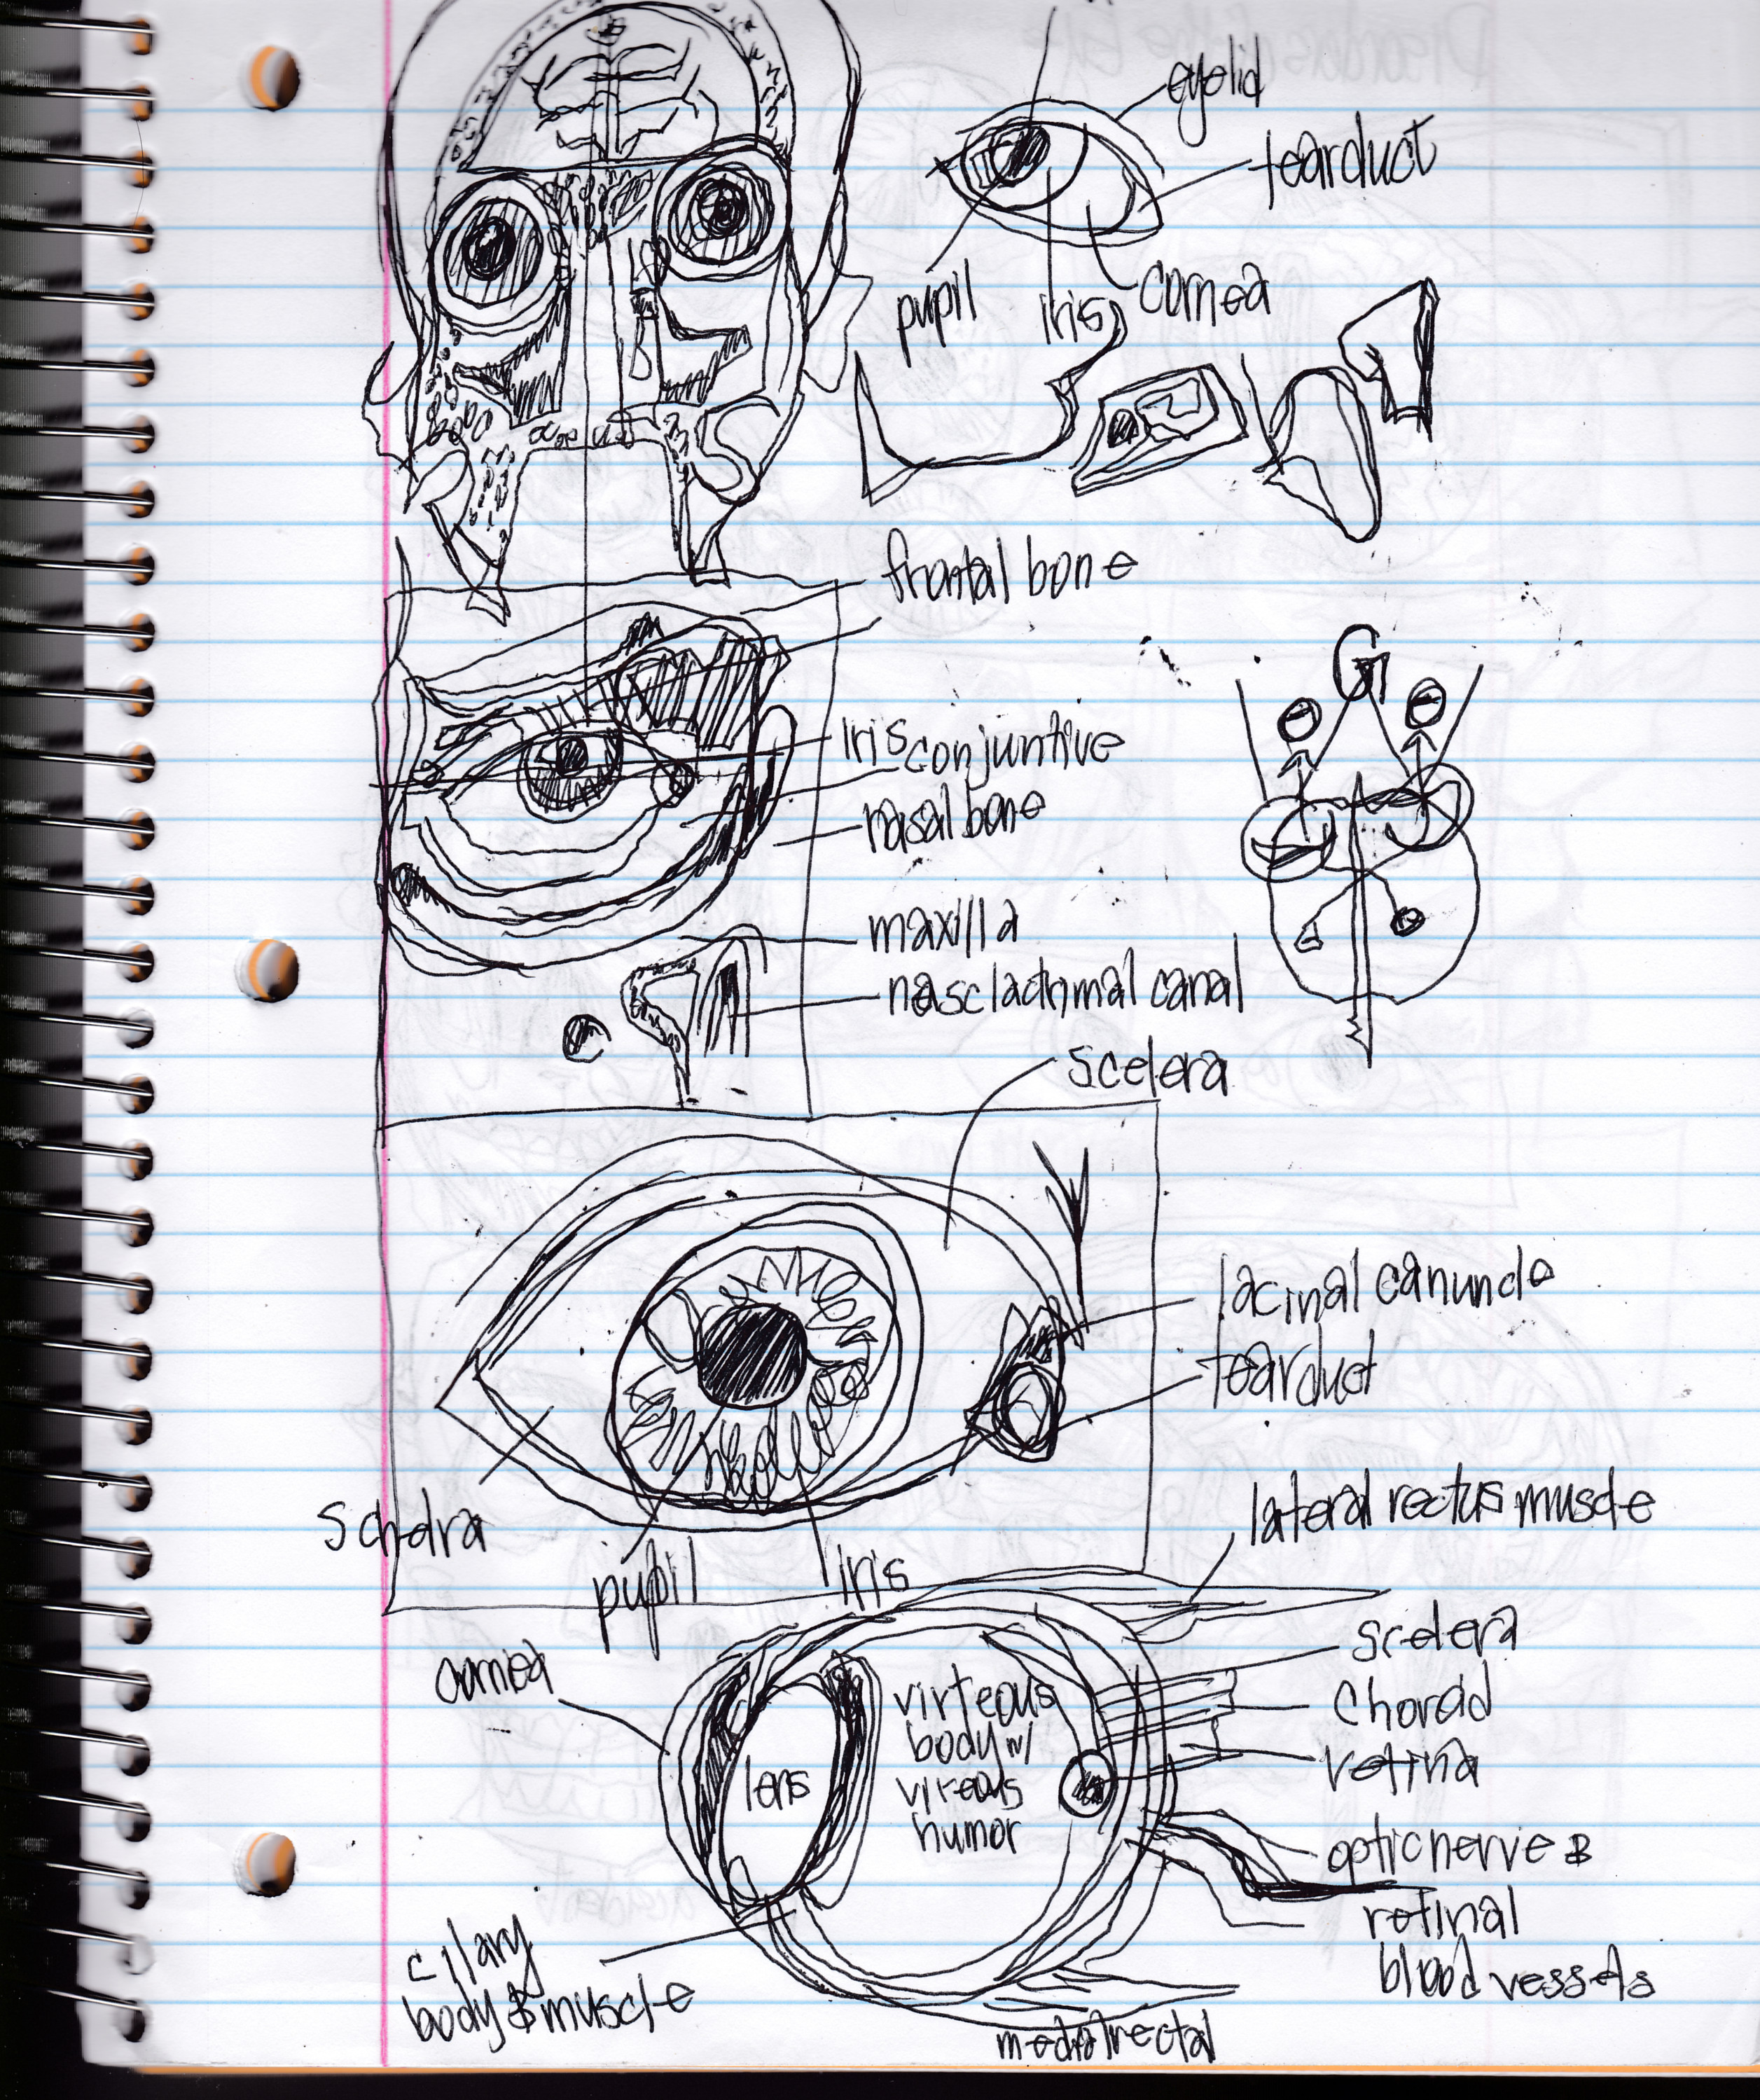 eyelid
tearduct
pupil
iris
cornea
frontal bone
G
iris
conjuntive
nasal bone
maxilla
nasclachrmal canal
scelera
lacinal canuncle
tearduct
schdra
pupil
iris
lateral rectus muscle
cornea
scelera
choroid
retina
lens
virteous
body w/
vireous
humor
optic nerve &
retinal
blood vessels
cilary
body & muscle
medial rectal